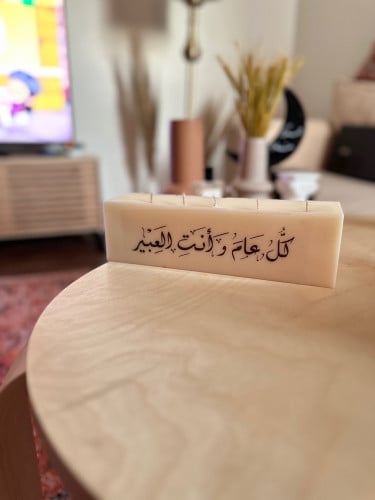 كُلُّ عَامَ وَأَنتِ العَبِيْر